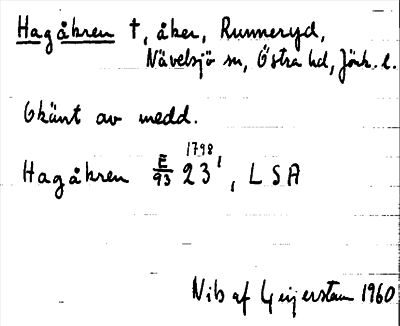 Hagåkren †, åker, Runneryd,
Nävelsjö sn, Östra hd, Jönk. l.
Okänt av medd.
1798
Hagåkren E/93 23¹, LSA
Nils af Geijerstam 1960